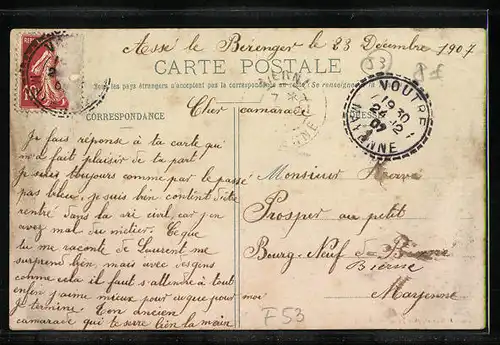 Assé le Bérenger le 23 Décembre 1907
53
CARTE POSTALE
Tous les pays étrangers n'acceptent pas la correspondance au recto (Se renseigner
CORRESPONDANCE
Cher camarade
VOUTRÉ
19 30
24 -12
07
MAYENNE
Je fais réponse à ta carte qui
m'a fait plaisir de ta part
je suis toujours comme par le passé
pas bileux, je suis bien content d'être
rentré dans la vie civil, car j'en
avez mal du métier. Ce que
tu me raconte de Laurent me
surprend bien, mais avec des gens
comme cela il faut s'attendre à tout
enfin j'aime mieux pour lui que pour moi
Je termine. Ton ancien
camarade qui te serre bien la main
Monsieur
Prosper au petit
Bourg-Neuf de
Bierné
Mayenne
F53